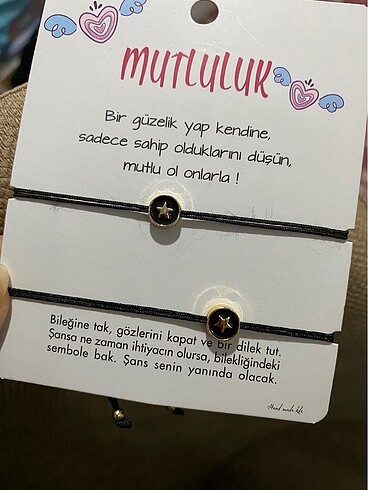 MUTLULUK
Bir güzelik yap kendine,
sadece sahip olduklarını düşün,
mutlu ol onlarla !
Bileğine tak, gözlerini kapat ve bir dilek tut.
Şansa ne zaman ihtiyacın olursa, bilekliğindeki
sembole bak. Şans senin yanında olacak.
Hand made